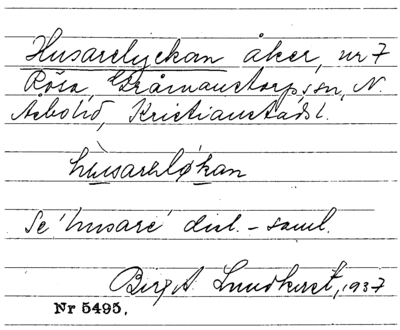 Husarelyckan åker, nr 7
Röra, Gråmanstorps sn, N.
Åsbo hd, Kristianstads l.
hùsarelø̨kan
Se 'husare' dial.-saml.
Birgit Lundkvist, 1937
Nr 5495.